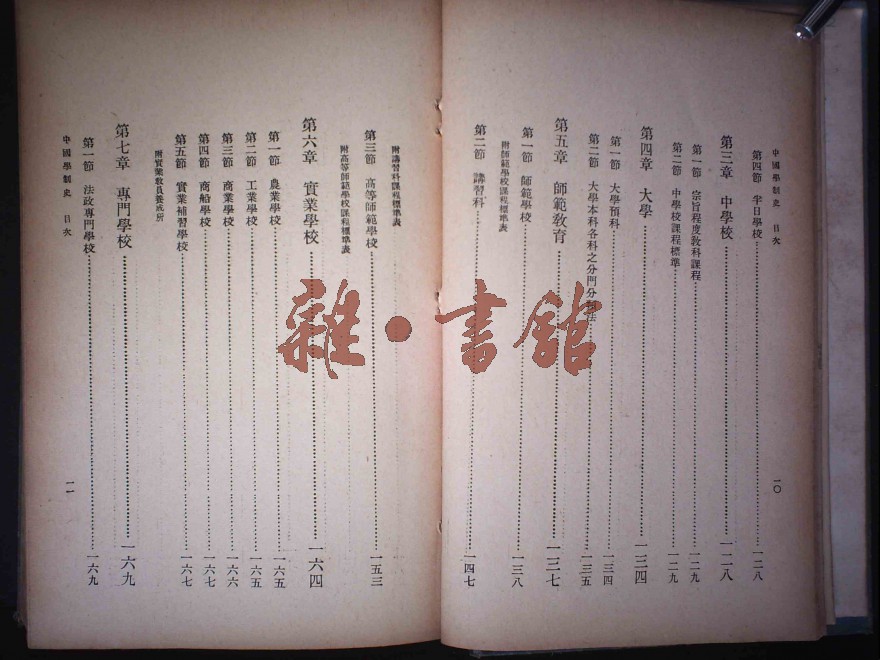 中國學制史 目次 一〇
第四節 半日學校 一二八
第三章 中學校 一二八
第一節 宗旨程度敎科課程 一二九
第二節 中學校課程標準 一二九
第四章 大學 一三四
第一節 大學預科 一三四
第二節 大學本科各科之分門分 法 一三五
第五章 師範敎育 一三七
第一節 師範學校 一三八
附師範學校課程標準表
第二節 講習科 一四七
附講習科課程標準表
第三節 高等師範學校 一五三
附高等師範學校課程標準表
第六章 實業學校 一六四
第一節 農業學校 一六五
第二節 工業學校 一六五
第三節 商業學校 一六六
第四節 商船學校 一六七
第五節 實業補習學校 一六七
附實業敎員養成所
第七章 專門學校 一六九
第一節 法政專門學校 一六九
中國學制史 目次 一一
雜·書館